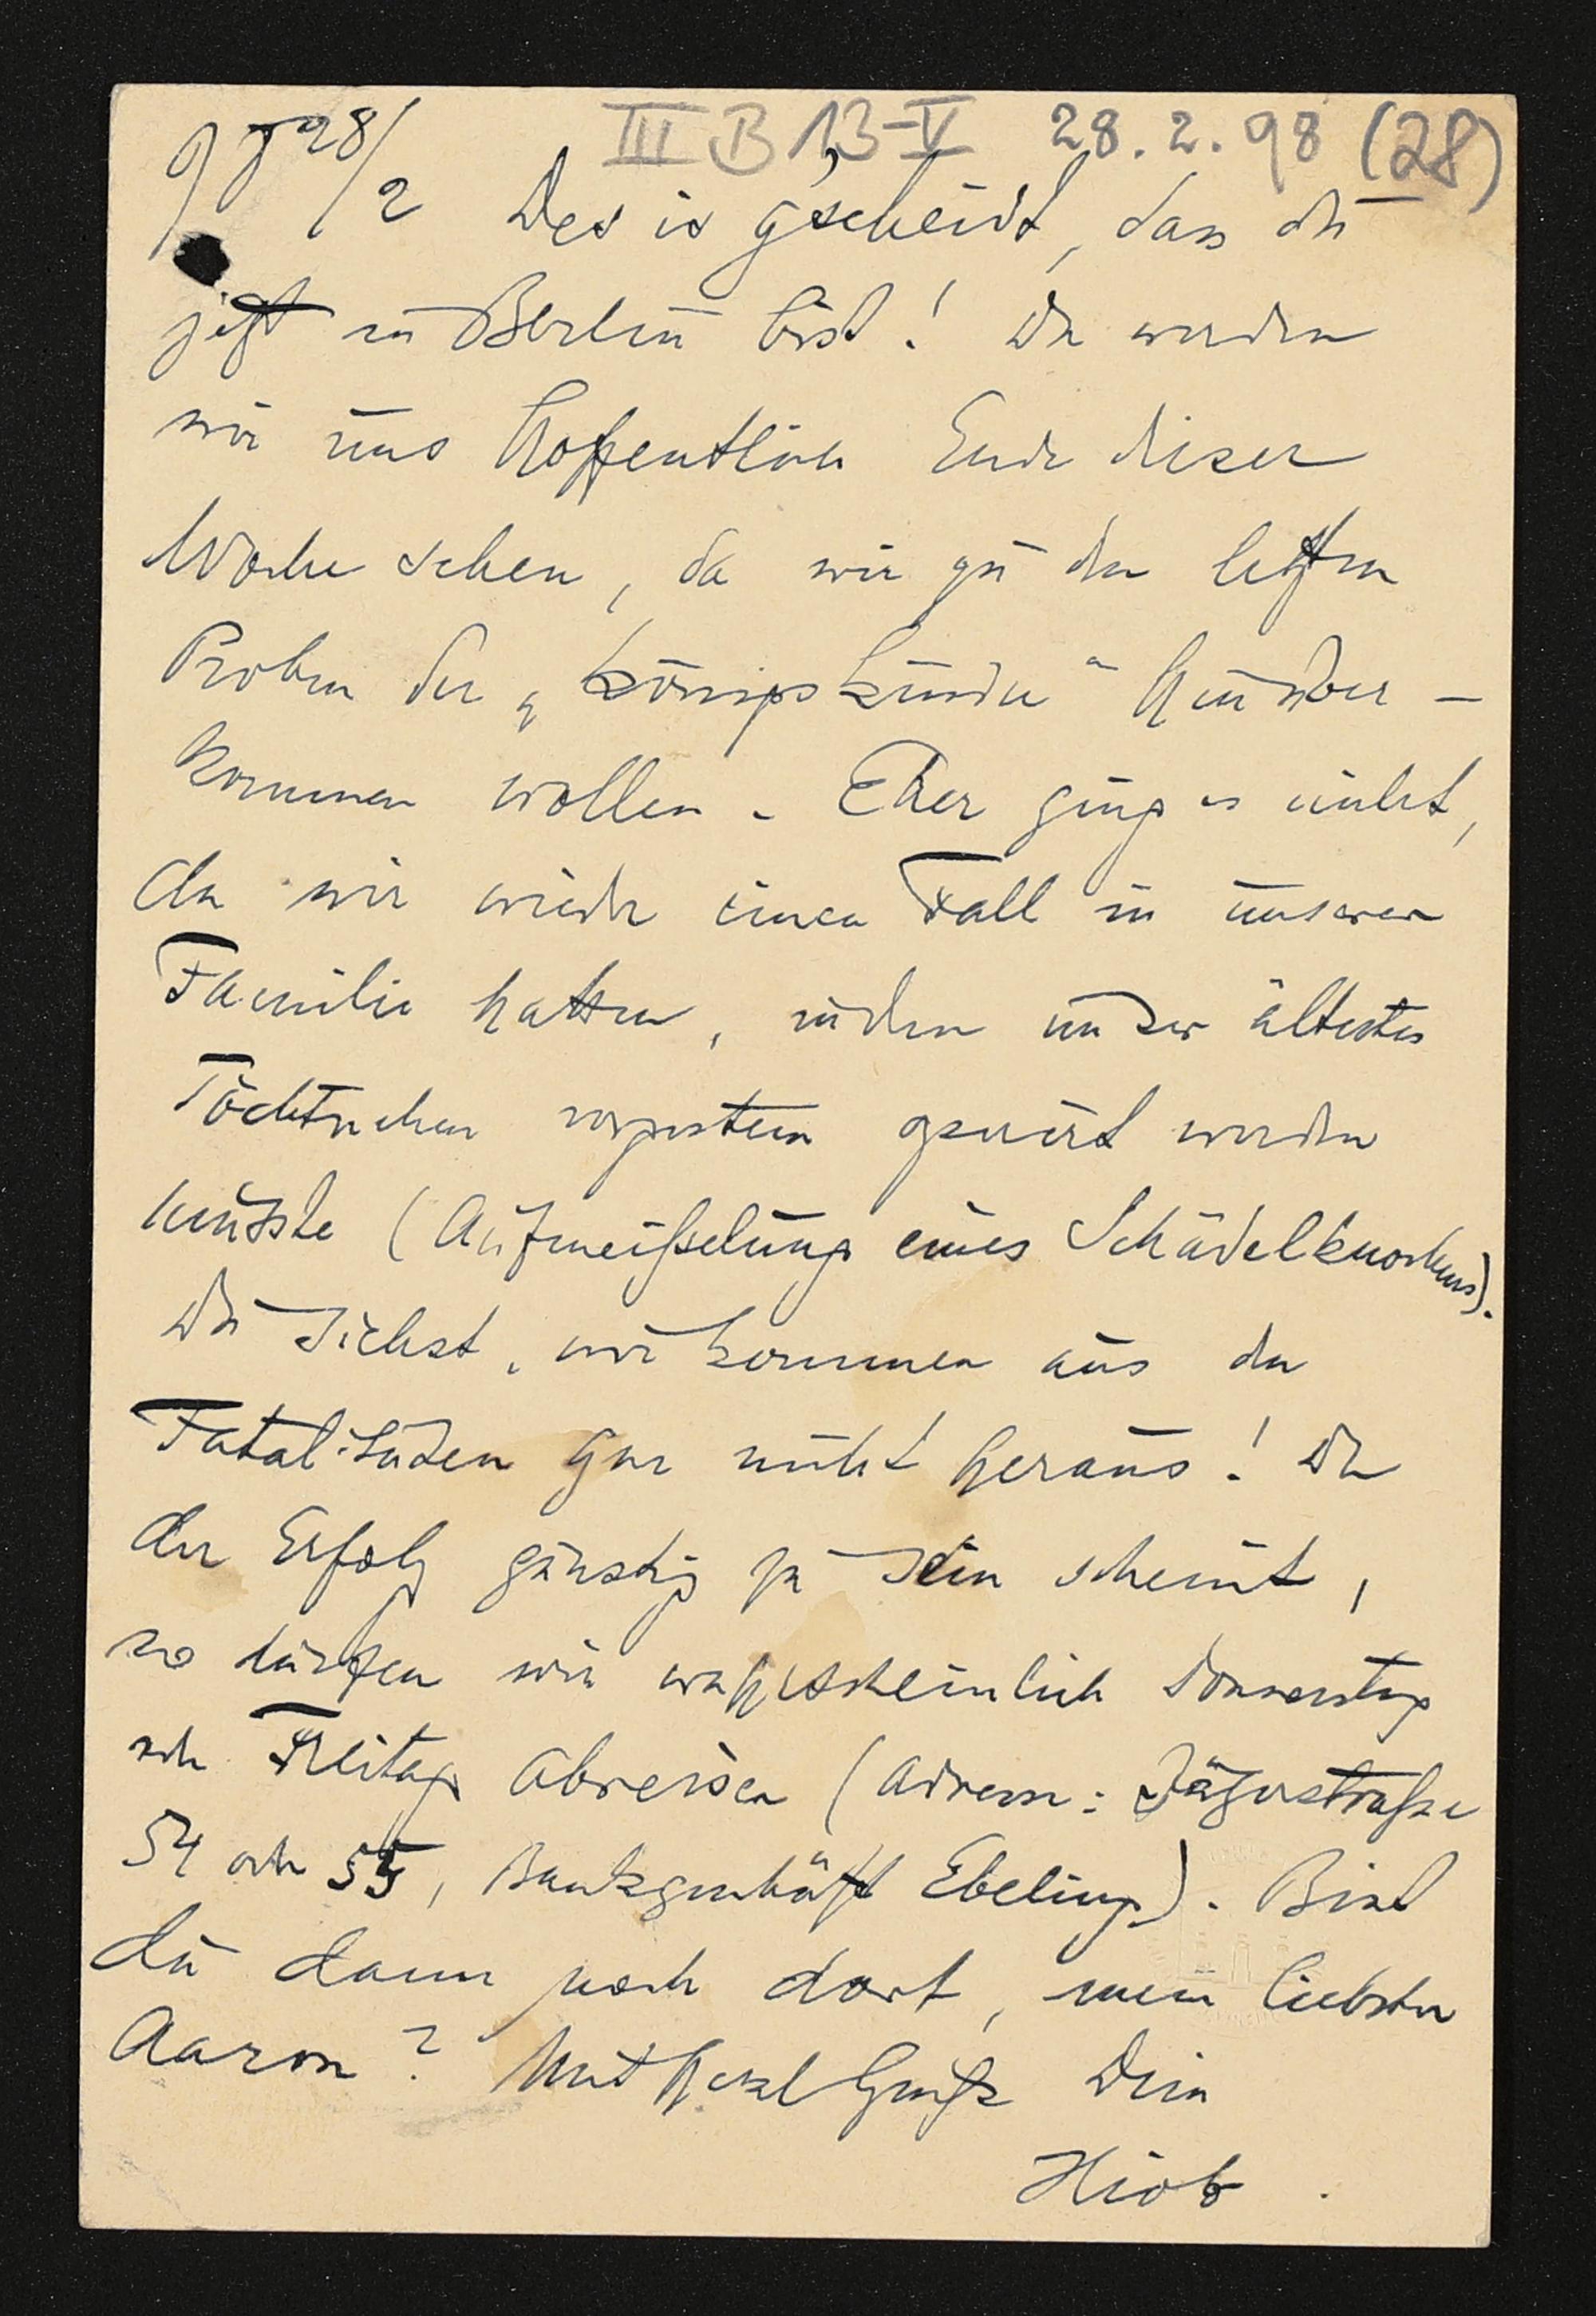 III B 13-V 28.2.98 (28)
28/2 Des is g'scheidt, dass du
jetzt in Berlin bist! Da werden
wir uns hoffentlich Ende dieser
Woche sehen, da wir zu den letzten
Proben der „Königskinder" hinüber-
kommen wollen. Eher ging es nicht,
da wir wieder einen Fall in unserer
Familie hatten, indem unser ältestes
Töchterchen vorgestern operiert werden
musste (Aufmeißelung eines Schädelknochens).
Du siehst, wir kommen aus den
Fatalitäten gar nicht heraus! Da
der Erfolg günstig zu sein scheint,
so dürfen wir wahrscheinlich Donnerstag
oder Freitag abreisen (Adresse: Jägerstraße
54 oder 55, Bankgeschäft Ebeling). Bist
du dann noch dort, mein liebster
Aaron? Mit herzl Gruße Dein
Hiob.